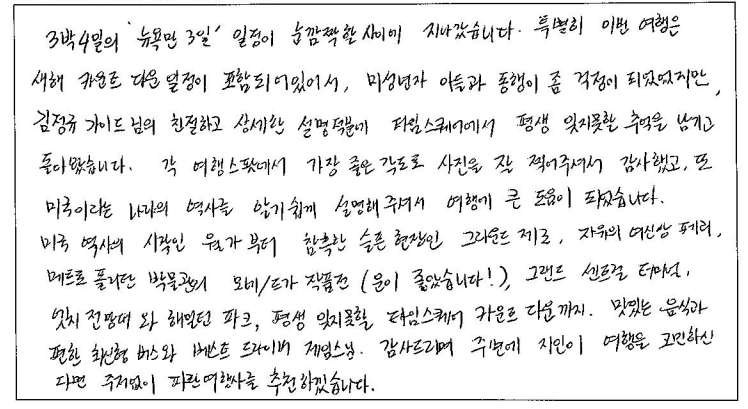 3박4일의 '뉴욕만 3일' 일정이 눈깜짝할사이에 지나갔습니다. 특별히 이번 여행은
새해 카운트 다운 일정이 포함되어있어서, 미성년자 아들과 동행이 좀 걱정이 되었었지만,
김정규 가이드 님의 친절하고 상세한 설명덕분에 타임스퀘어에서 평생 잊지못할 추억을 남기고
돌아왔습니다. 각 여행스팟에서 가장 좋은 각도로 사진을 잘 찍어주셔서 감사했고, 또
미국이라는 나라의 역사를 알기쉽게 설명해주셔서 여행에 큰 도움이 되었습니다.
미국 역사의 시작인 월가 부터 참혹한 슬픈 현장인 그라운드 제로, 자유의 여신상 페리,
메트로 폴리탄 박물관의 모네/드가 작품전 (운이 좋았습니다!), 그랜드 센트럴 터미널,
엣지 전망대 와 허드슨 파크, 평생 잊지못할 타임스퀘어 카운트 다운까지. 맛있는 음식과
편한 최신형 버스와 베스트 드라이버 제임스님. 감사드리며 주변에 지인이 여행을 고민하신
다면 주저없이 파란여행사를 추천하겠습니다.